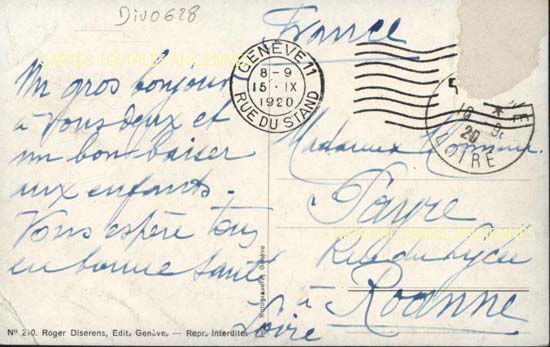 Div0628
France
CARTES POSTALES ANCIENNES
GENÈVE 11
8-9
15 · IX
1920
RUE DU STAND
LOIRE
Un gros bonjour
à vous deux et
un bon baiser
aux enfants.
Vous espère tous
en bonne santé
Madame
Favre
Rue du Lycée
à Roanne
Loire
Nº 210. Roger Diserens, Edit. Genève. — Repr. Interdite.